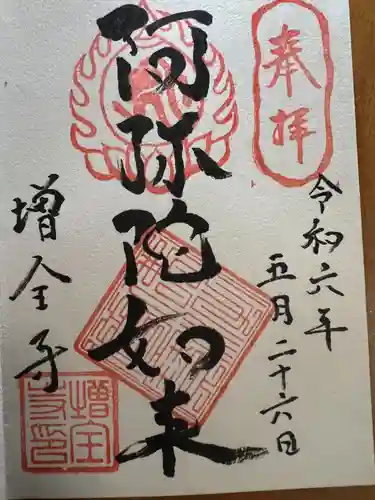 奉拝
令和六年
五月二十六日
阿弥陀如来
増全寺
増全寺印